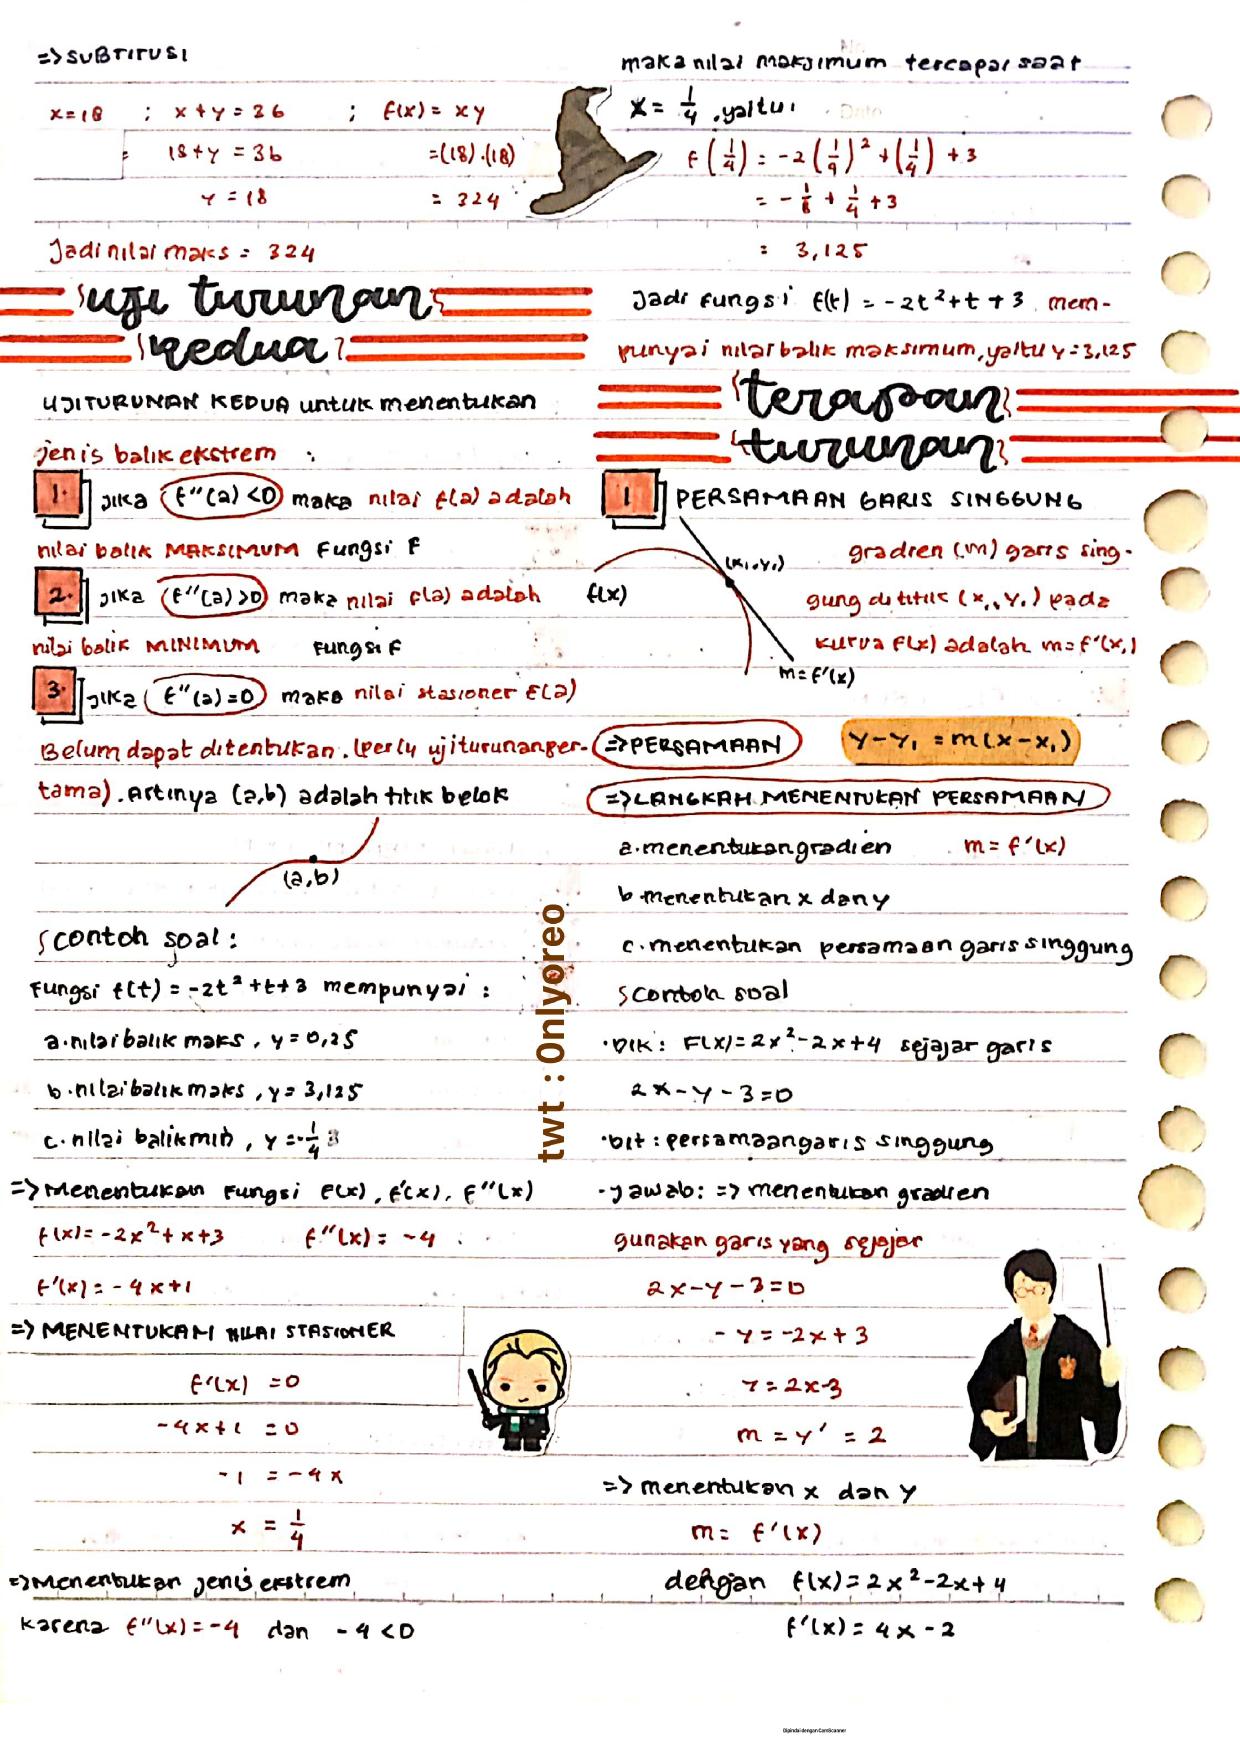 => SUBTITUSI
x=18 ; x+y=36 ; f(x)= xy
18+y = 36 =(18).(18)
y = 18 = 324
Jadi nilai maks = 324
uji turunan
kedua
UJI TURUNAN KEDUA untuk menentukan
jenis balik ekstrem :
1. jika f"(a) <0 maka nilai f(a) adalah
nilai balik MAKSIMUM Fungsi F
2. jika f"(a) >0 maka nilai f(a) adalah
nilai balik MINIMUM Fungsi F
3. jika f"(a)=0 maka nilai stasioner f(a)
Belum dapat ditentukan. (perlu uji turunan per-
tama). Artinya (a,b) adalah titik belok
(a,b)
contoh soal :
Fungsi f(t) = -2t²+t+3 mempunyai :
a. nilai balik maks, y = 0,25
b. nilai balik maks, y = 3,125
c. nilai balik min, y = -1/4
=> Menentukan Fungsi F(x), f'(x), f"(x)
f(x)= -2x²+x+3 f"(x) = -4
f'(x) = -4x+1
=> MENENTUKAN NILAI STASIONER
f'(x) =0
-4x+1 =0
-1 = -4x
x = 1/4
=> Menentukan jenis ekstrem
karena f"(x)=-4 dan -4<0
maka nilai maksimum tercapai saat
x = 1/4, yaitu:
f(1/4) = -2(1/4)² + (1/4) + 3
= -1/8 + 1/4 +3
= 3,125
Jadi Fungsi f(t) = -2t²+t+3 mem-
punyai nilai balik maksimum, yaitu y=3,125
terapan
turunan
1 PERSAMAAN GARIS SINGGUNG
(x₁,y₁) gradien (m) garis sing-
f(x) gung di titik (x₁,y₁) pada
kurva F(x) adalah m=f'(x₁)
m=f'(x)
=> PERSAMAAN y-y₁ = m(x-x₁)
=> LANGKAH MENENTUKAN PERSAMAAN
a. menentukan gradien m= f'(x)
b. menentukan x dan y
c. menentukan persamaan garis singgung
contoh soal
•Dik: F(x)=2x²-2x+4 sejajar garis
2x-y-3=0
•Dit: persamaan garis singgung
•jawab: => menentukan gradien
gunakan garis yang sejajar
2x-y-3=0
-y=-2x+3
y=2x-3
m = y' = 2
=> menentukan x dan y
m= f'(x)
dengan f(x)=2x²-2x+4
f'(x)= 4x-2
twt : 0nlyoreo
Dipindai dengan CamScanner